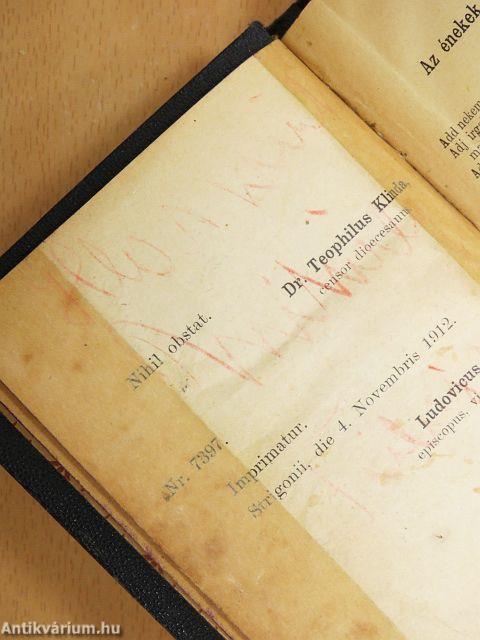 Nihil obstat.
Dr. Teophilus Klinda,
censor dioecesanus
Nr. 7397.
Imprimatur.
Strigonii, die 4. Novembris 1912.
Ludovicus
episcopus, vi
Az énekek
Add nekem
Adj irg
Antikvárium.hu